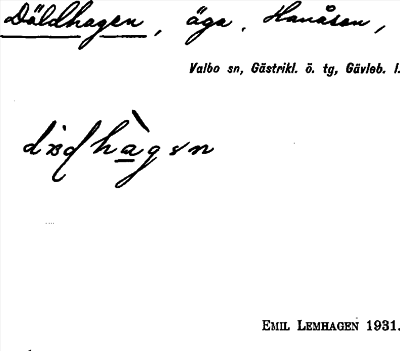 Däldhagen, äga, Hanåsen,
Valbo sn, Gästrikl. ö. tg, Gävleb. l.
EMIL LEMHAGEN 1931.